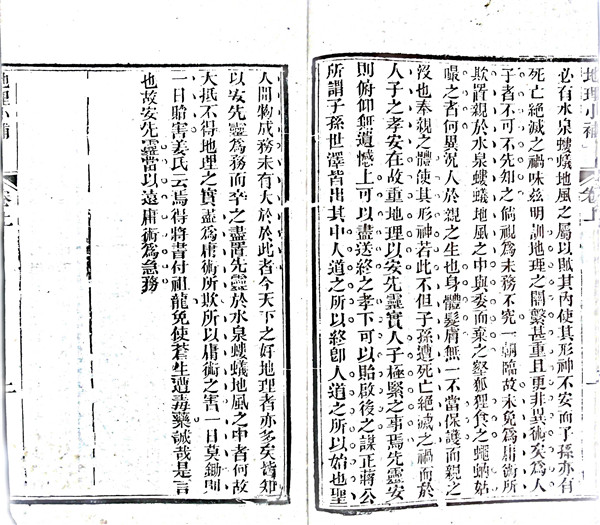 地理小補
卷上
必有水泉螻蟻地風之屬以賊其內使其形神不安而子孫亦有
死亡絕滅之禍味茲明訓地理之關繫甚重且更非異術矣為人
子者不可不先知之倘視為末務不究一朝臨故未免為庸術所
欺置親於水泉螻蟻地風之中與委而棄之壑狐狸食之蠅蚋姑
嘬之者何異況人於親之生也身體髮膚無一不當保護而親之
沒也奉親之體使其形神若此不但子孫遭死亡絕滅之禍而於
人子之孝安在故重地理以安先靈實人子極緊之事焉先靈安
則俯仰無遺憾上可以盡送終之孝下可以貽啟後之謀正蔣公
所謂子孫世澤皆出其中人道之所以終即人道之所以始也聖
人開物成務未有大於於此者今天下之好地理者亦多矣皆知
以安先靈為務而卒之盡置先靈於水泉螻蟻地風之中者何故
大抵不得地理之實盡為庸術所欺所以庸術之害一日莫鋤則
一日貽害姜氏云焉得將書付祖龍免使蒼生遭毒藥誠哉是言
也故安先靈當以遠庸術為急務
地理小補
卷上